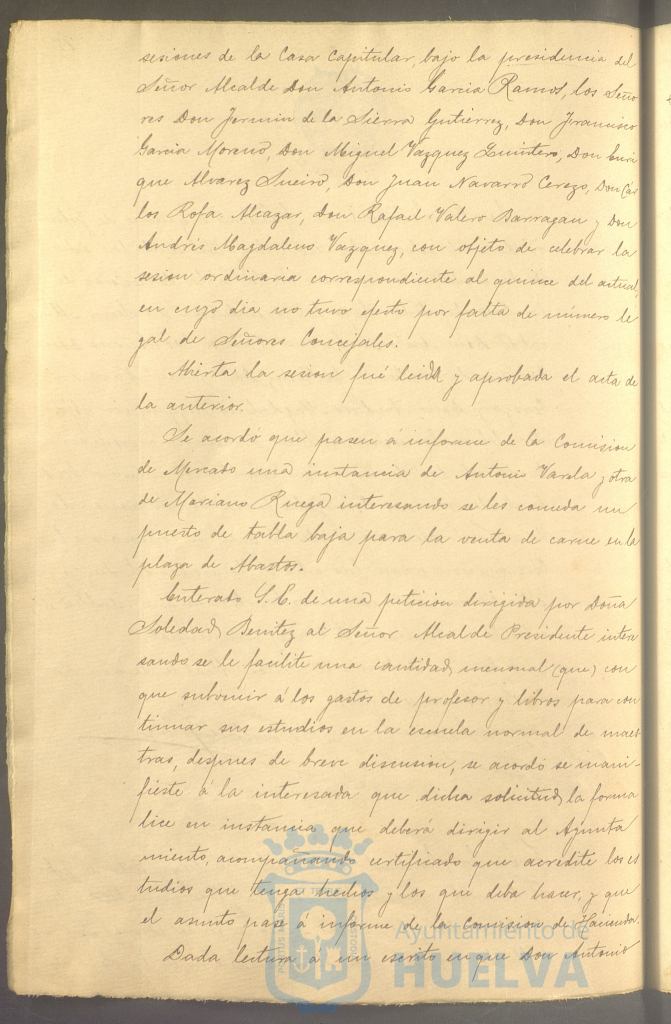 sesiones de la Casa Capitular, bajo la presidencia del
Señor Alcalde Don Antonio Garcia Ramos, los Seño
res Don Fermin de la Sierra Gutierrez, Don Francisco
Garcia Moreno, Don Miguel Vazquez Quintero, Don Enri
que Alvarez Sueiro, Don Juan Navarro Cerezo, Don Cár
los Rofa Alcazar, Don Rafael Valero Barragan y Don
Andrés Magdaleno Vazquez, con objeto de celebrar la
sesion ordinaria correspondiente al quince del actual,
en cuyo dia no tuvo efecto por falta de número le
gal de Señores Concejales.
Abierta la sesion fué leida y aprobada el acta de
la anterior.
Se acordó que pasen á informe de la Comision
de Mercado una instancia de Antonio Varela y otra
de Mariano Ruega interesando se les conceda un
puesto de tabla baja para la venta de carne en la
plaza de Abastos.
Enterado S.E. de una peticion dirigida por Doña
Soledad Benitez al Señor Alcalde Presidente intere
sando se le facilite una cantidad mensual (que) con
que subvenir á los gastos de profesor y libros para con
tinuar sus estudios en la escuela normal de maes
tras, despues de breve discusion, se acordó se mani-
fieste á la interesada que dicha solicitud la forma
lice en instancia que deberá dirigir al Ayunta
miento, acompañando certificado que acredite los es
tudios que tenga hechos y los que deba hacer, y que
el asunto pase á informe de la Comision de Hacienda.
Dada lectura á un escrito en que Don Antonio
Ayuntamiento de
HUELVA